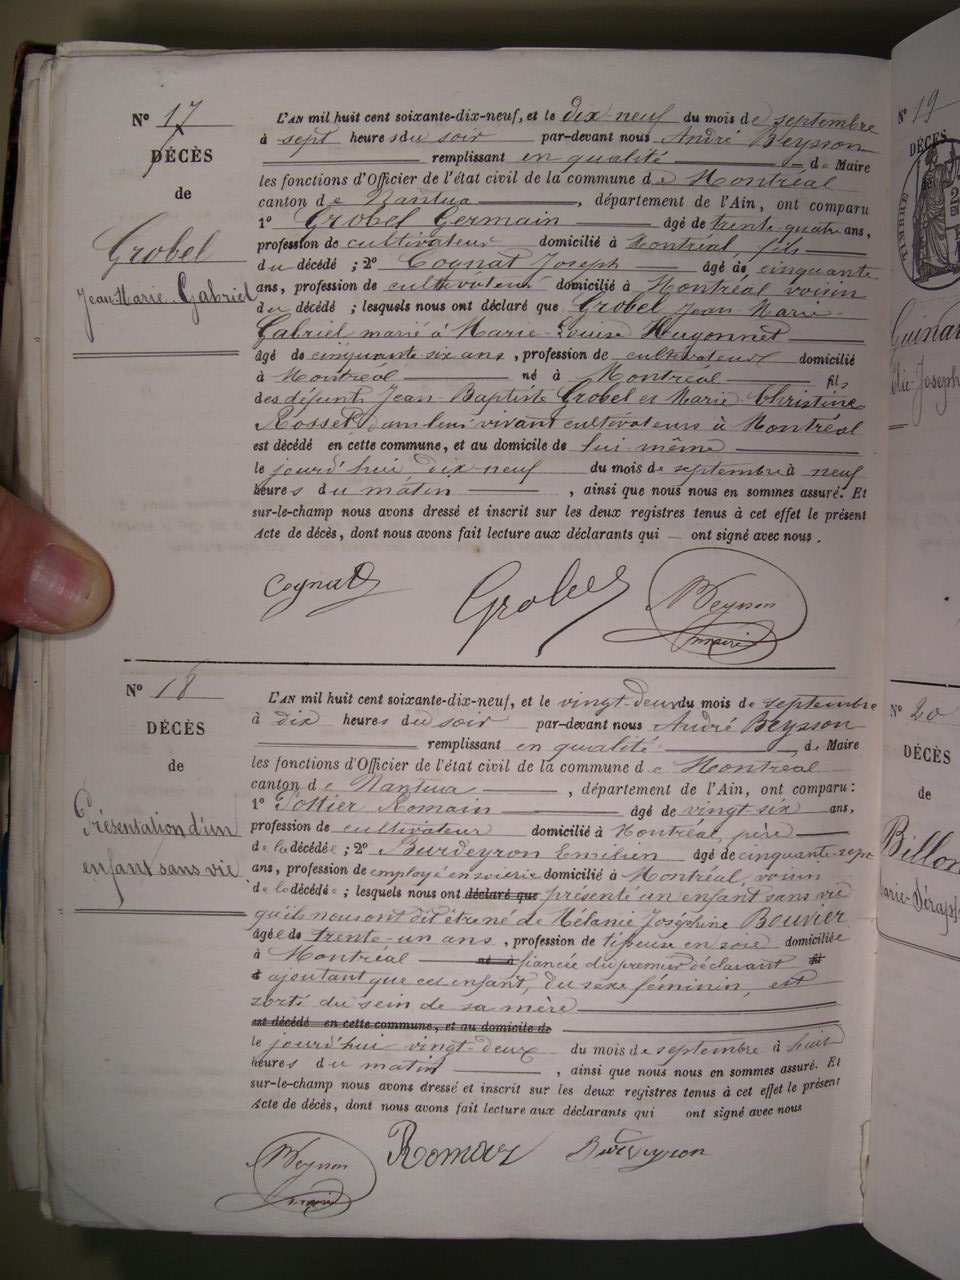 Nº 17
DÉCÈS
de
Grobel
Jean Marie Gabriel
L'AN mil huit cent soixante-dix-neuf, et le dix neuf du mois de septembre
à sept heures du soir par-devant nous André Beysson
remplissant en qualité de Maire
les fonctions d'Officier de l'état civil de la commune de Montréal
canton de Nantua, département de l'Ain, ont comparu
1º Grobel Germain âgé de trente quatre ans,
profession de cultivateur domicilié à Montréal, fils
du décédé ; 2º Cognat Joseph âgé de cinquante
ans, profession de cultivateur domicilié à Montréal voisin
du décédé ; lesquels nous ont déclaré que Grobel Jean Marie
Gabriel marié à Marie Louise Hugonnet
âgé de cinquante six ans, profession de cultivateur domicilié
à Montréal né à Montréal fils
des défunts Jean Baptiste Grobel et Marie Christine
Rosset, dans leur vivant cultivateurs à Montréal
est décédé en cette commune, et au domicile de lui même
le jourd'hui dix neuf du mois de septembre à neuf
heures du matin, ainsi que nous nous en sommes assuré. Et
sur-le-champ nous avons dressé et inscrit sur les deux registres tenus à cet effet le présent
Acte de décès, dont nous avons fait lecture aux déclarants qui ont signé avec nous.
Cognat Grobel Beysson
maire
Nº 18
DÉCÈS
de
Présentation d'un
enfant sans vie
L'AN mil huit cent soixante-dix-neuf, et le vingt-deux du mois de septembre
à dix heures du soir par-devant nous André Beysson
remplissant en qualité de Maire
les fonctions d'Officier de l'état civil de la commune de Montréal
canton de Nantua, département de l'Ain, ont comparu :
1º Romain âgé de vingt six ans,
profession de cultivateur domicilié à Montréal, père
de la décédée ; 2º Burdeyron Emilien âgé de cinquante-sept
ans, profession de employé en soierie domicilié à Montréal, voisin
de la décédée ; lesquels nous ont déclaré que présenté un enfant sans vie
qu'ils nous ont dit être né de Mélanie Joséphine Bouvier
âgée de trente-un ans, profession de tisseuse en soie domiciliée
à Montréal né à fiancée du premier déclarant
ajoutant que cet enfant, du sexe féminin, est
sorti du sein de sa mère
est décédé en cette commune, et au domicile de
le jourd'hui vingt-deux du mois de septembre à huit
heures du matin, ainsi que nous nous en sommes assuré. Et
sur-le-champ nous avons dressé et inscrit sur les deux registres tenus à cet effet le présent
Acte de décès, dont nous avons fait lecture aux déclarants qui ont signé avec nous
Beysson Romain Burdeyron
maire
Nº 19
DÉCÈS
TIMBRE
Nº 20
DÉCÈS
de